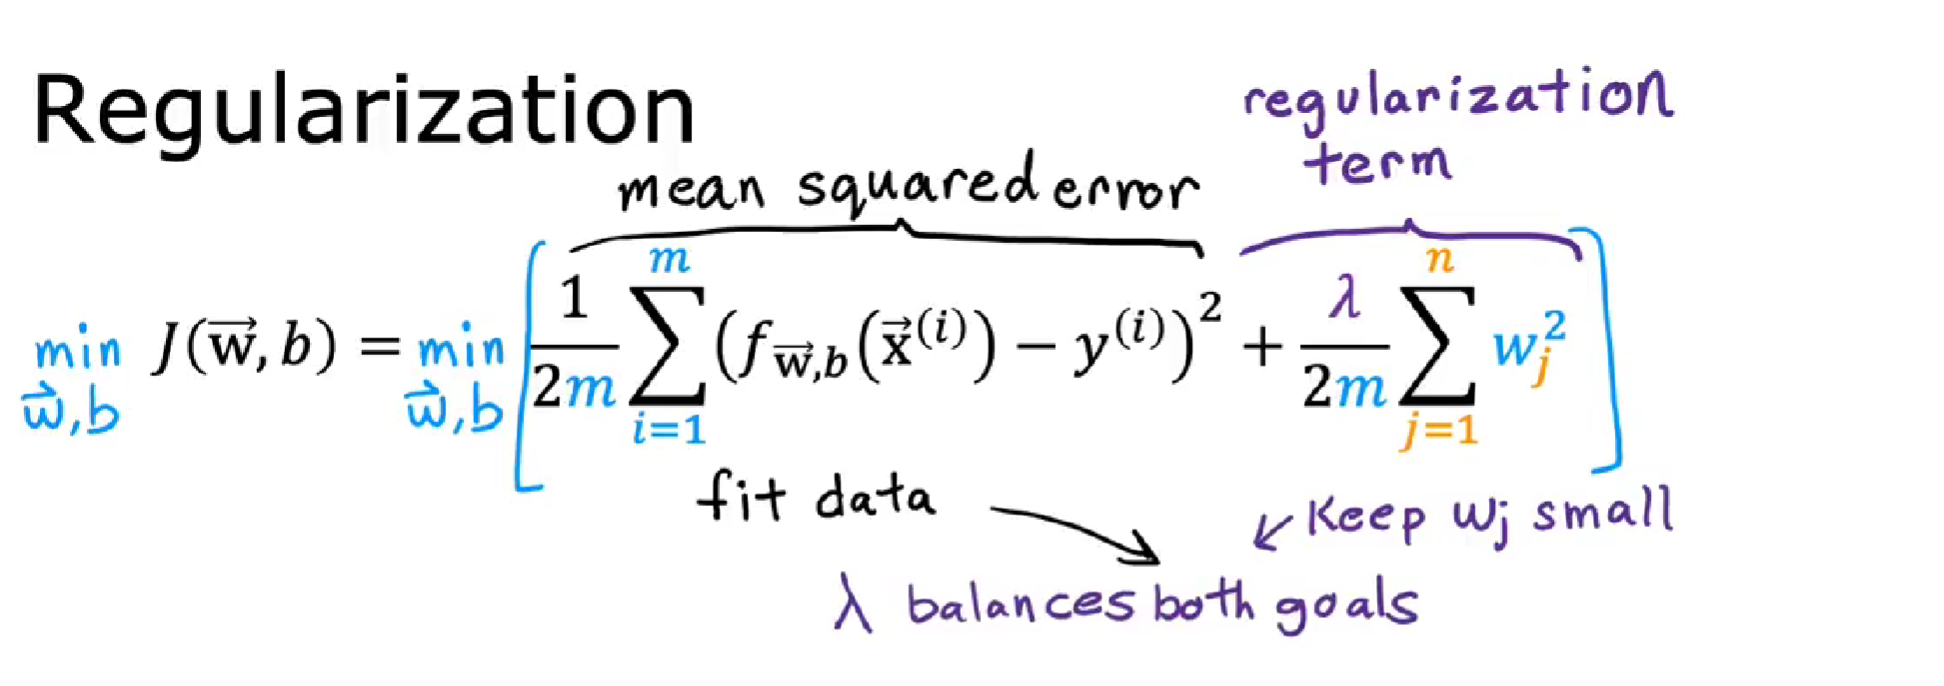 Regularization
regularization
term
mean squared error
min J(w⃗, b) = min [ 1/2m ∑ (f w⃗,b (x⃗^(i)) − y^(i))² + λ/2m ∑ w_j² ]
w⃗,b w⃗,b m i=1 n j=1
fit data
Keep wj small
λ balances both goals